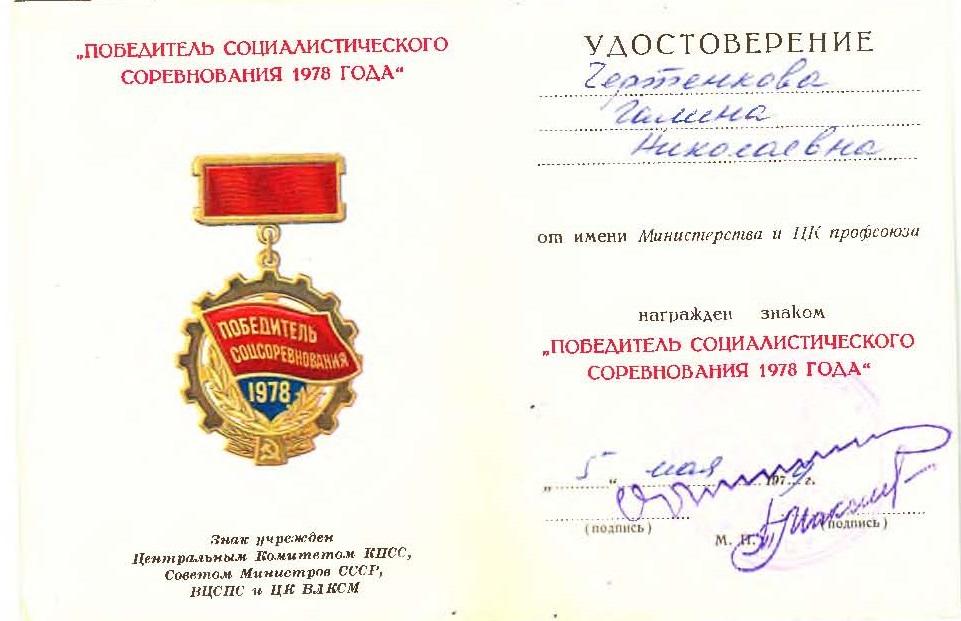 „ПОБЕДИТЕЛЬ СОЦИАЛИСТИЧЕСКОГО
СОРЕВНОВАНИЯ 1978 ГОДА“
ПОБЕДИТЕЛЬ
СОЦСОРЕВНОВАНИЯ
1978
Знак учрежден
Центральным Комитетом КПСС,
Советом Министров СССР,
ВЦСПС и ЦК ВЛКСМ
УДОСТОВЕРЕНИЕ
Чертенкова
Галина
Николаевна
от имени Министерства и ЦК профсоюза
награжден знаком
„ПОБЕДИТЕЛЬ СОЦИАЛИСТИЧЕСКОГО
СОРЕВНОВАНИЯ 1978 ГОДА“
„5“ мая 1979 г.
(подпись) (подпись)
М. П.